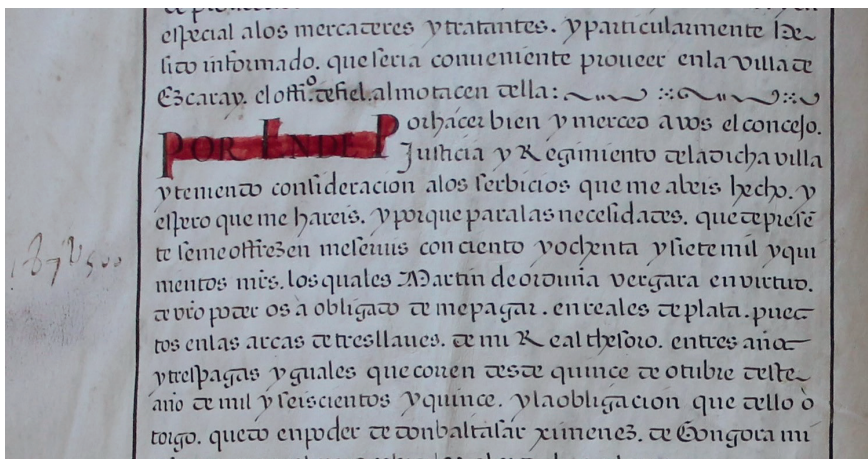 especial alos mercaderes y tratantes. y particularmente he
sido informado. que seria conueniente proueer en la villa de
Ezcaray. el offi.º de fiel. almotacen della:
POR ENDE Por hacer bien y merced a vos el concejo.
Justicia y Regimiento de la dicha villa
y teniendo consideracion alos serbicios que me abeis hecho. y
espero que me hareis. y porque para las necesidades. que de presē
te se me offrezen me seruis con ciento y ochenta y siete mil y qui
nientos mrs. los quales Martin de orduña vergara en virtud.
de vrō poder os à obligado de me pagar. en reales de plata. pues
tos en las arcas de tres llaues. de mi Real thesoro. en tres años
y tres pagas yguales que corren desde quince de otubre deste
año de mil y seiscientos y quince. y la obligacion que dello ò
torgo. quedo en poder de don baltasar ximenez. de Gongora mi